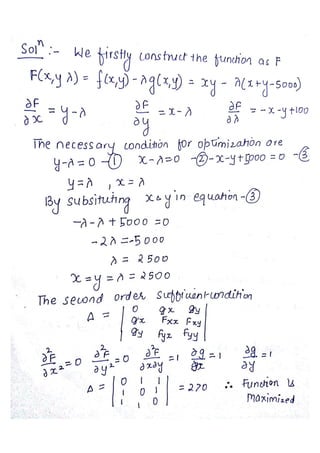 Solⁿ :- We firstly construct the function as F
F(x,y λ) = f(x,y) - λg(x,y) = xy - λ(x+y-5000)
∂F/∂x = y-λ ∂F/∂y = x-λ ∂F/∂λ = -x-y+100
The necessary condition for optimization are
y-λ=0 -① x-λ=0 -②-x-y+5000 = 0 -③
y=λ , x=λ
By subsituting x & y in equation-③
-λ-λ+5000 =0
-2λ =-5000
λ = 2500
x = y = λ = 2500
The second order suffiuent condition
Δ = | 0 gx gy |
| gx Fxx Fxy |
| gy Fyx Fyy |
∂²F/∂x²=0 ∂²F/∂y²=0 ∂²F/∂x∂y =1 ∂g/∂x =1 ∂g/∂y =1
Δ = | 0 1 1 |
| 1 0 1 | = 2>0 ∴ Function is
| 1 1 0 | maximized